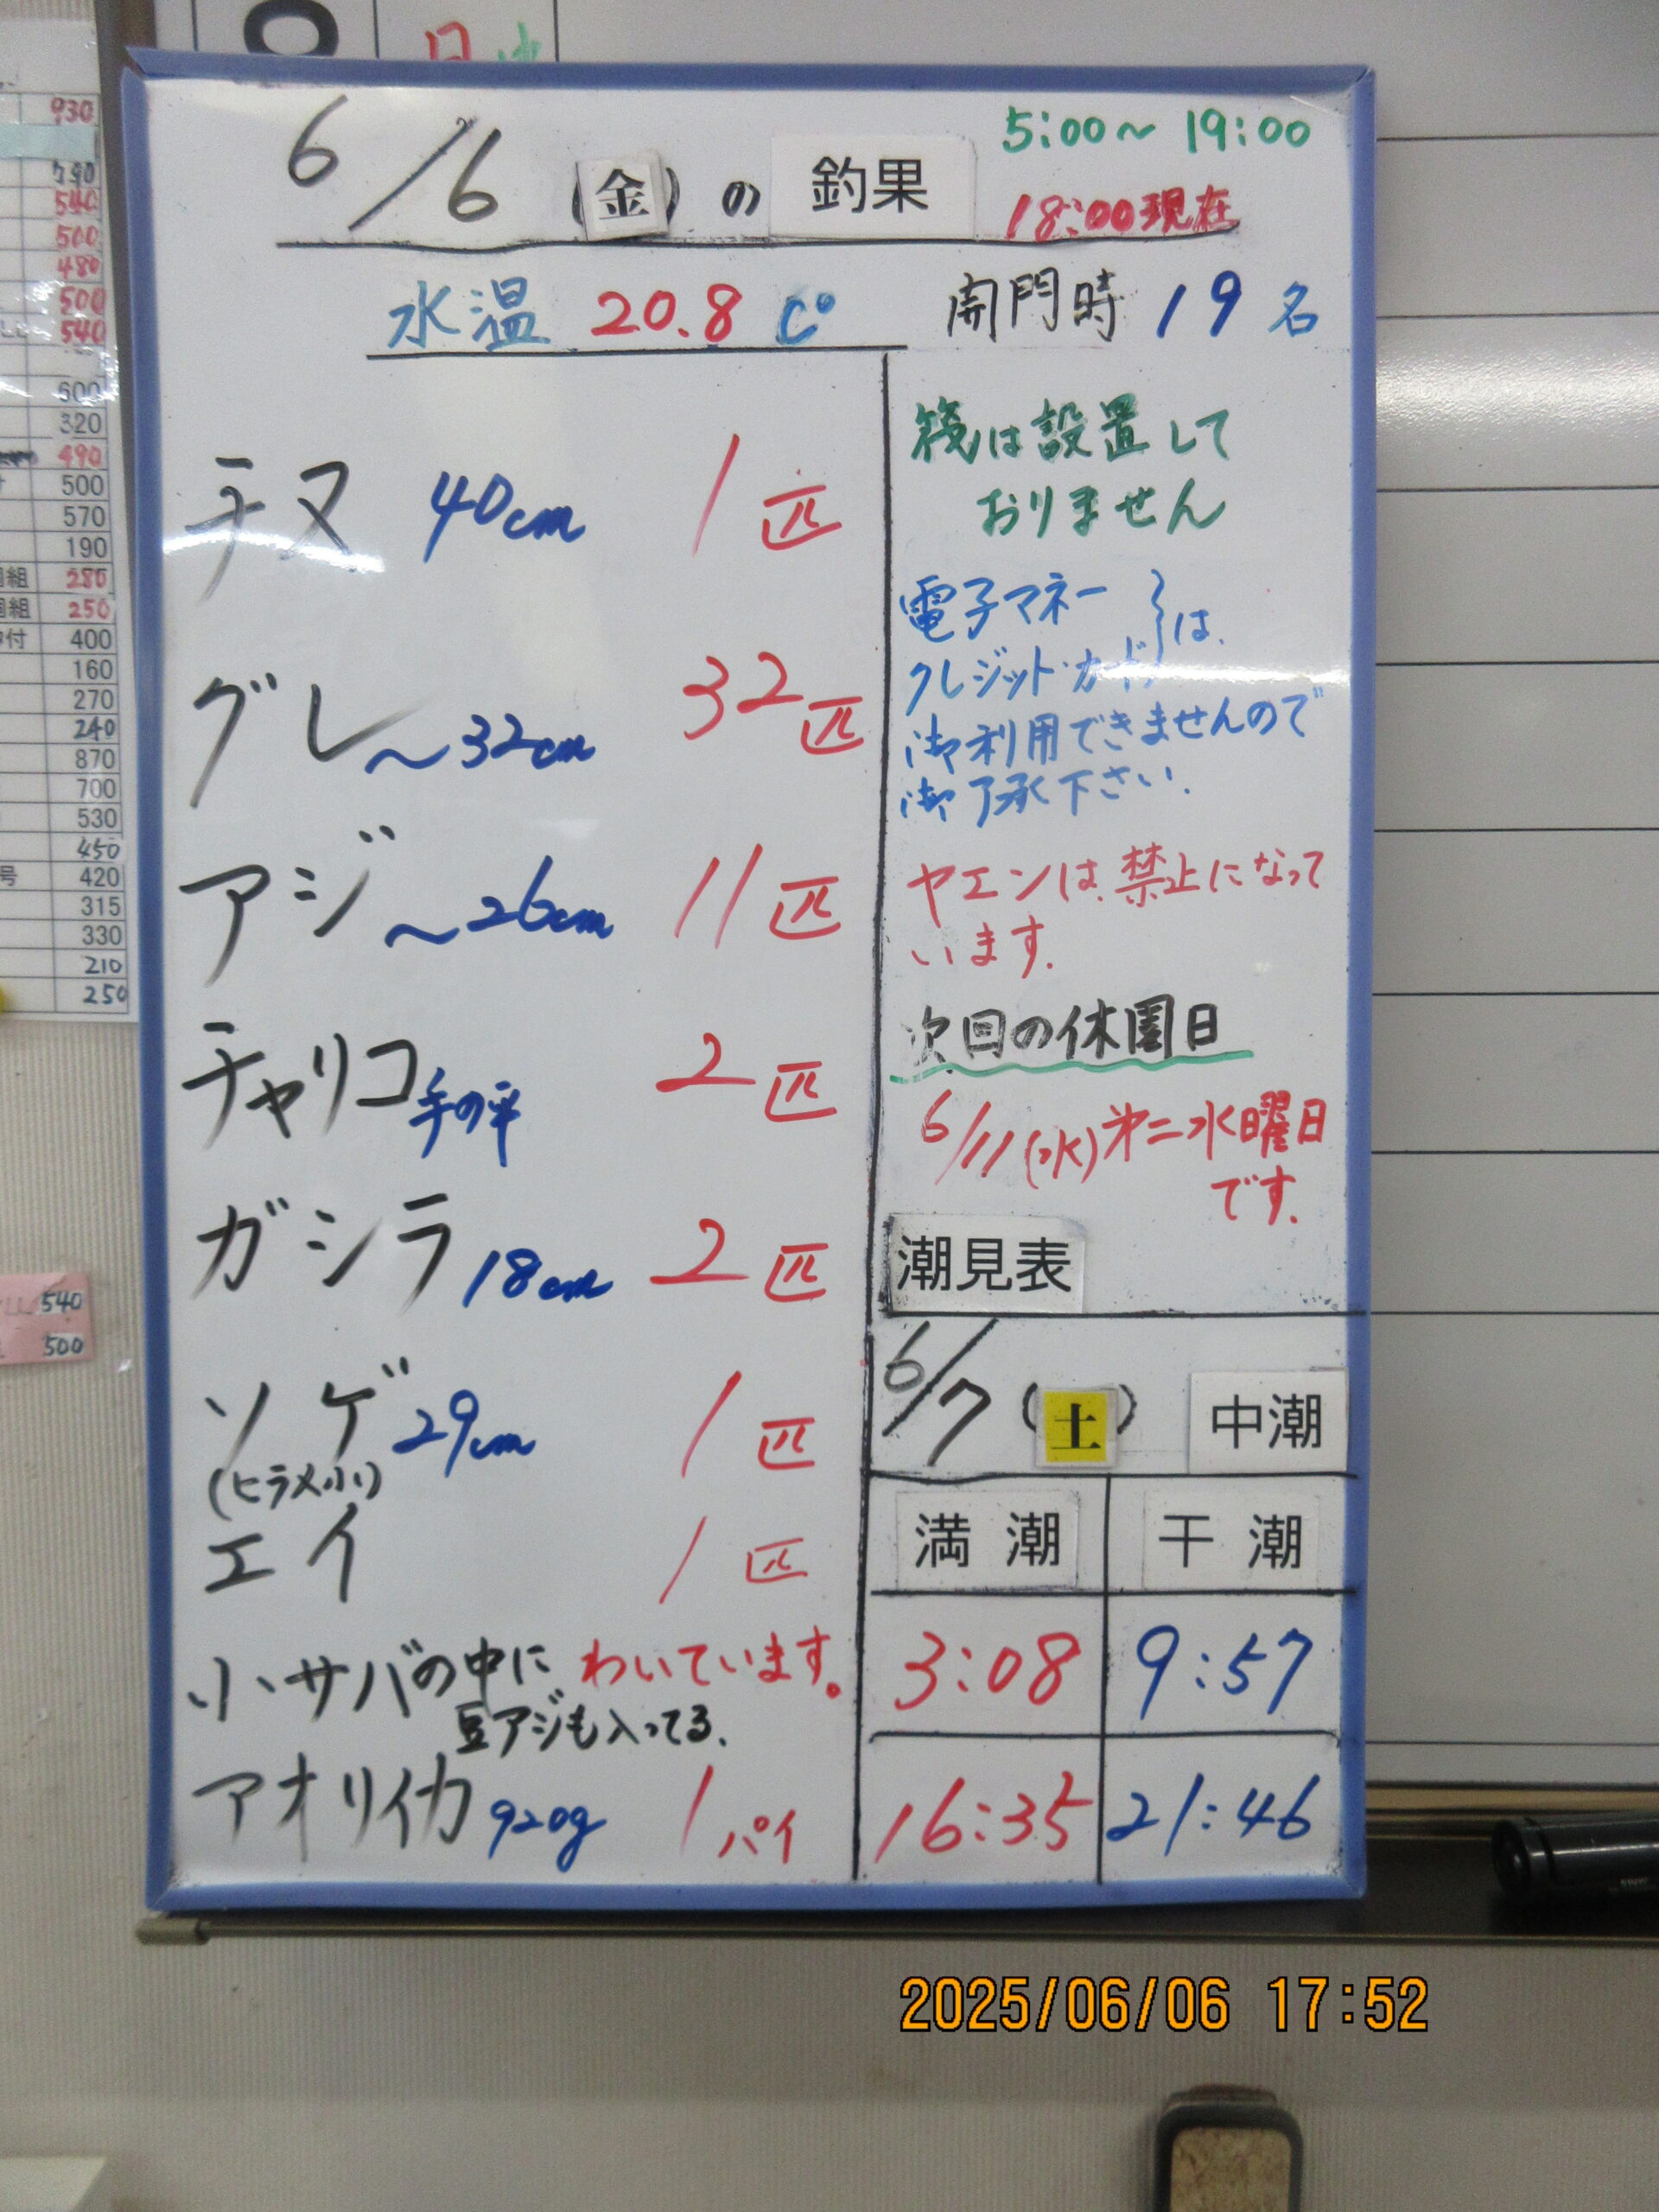 6/6(金)の 釣果
5:00〜19:00
18:00現在
水温 20.8 C°
開門時 19名
チヌ 40cm 1匹
グレ 〜32cm 32匹
アジ 〜26cm 11匹
チャリコ 手の平 2匹
ガシラ 18cm 2匹
ソゲ 29cm 1匹
(ヒラメ小)
エイ 1匹
小サバの中に わいています。
豆アジも入ってる.
アオリイカ 920g 1パイ
筏は設置して
おりません
電子マネー
クレジット・カード}は.
御利用できませんので
御了承下さい.
ヤエンは禁止になって
います.
次回の休園日
6/11(水)第二水曜日
です.
潮見表
6/7(土) 中潮
満潮 干潮
3:08 9:57
16:35 21:46
930
790
540
500
480
500
540
600
320
490
500
570
190
組 280
組 250
付 400
160
270
240
870
700
530
450
号 420
315
330
210
250
540
500
2025/06/06 17:52